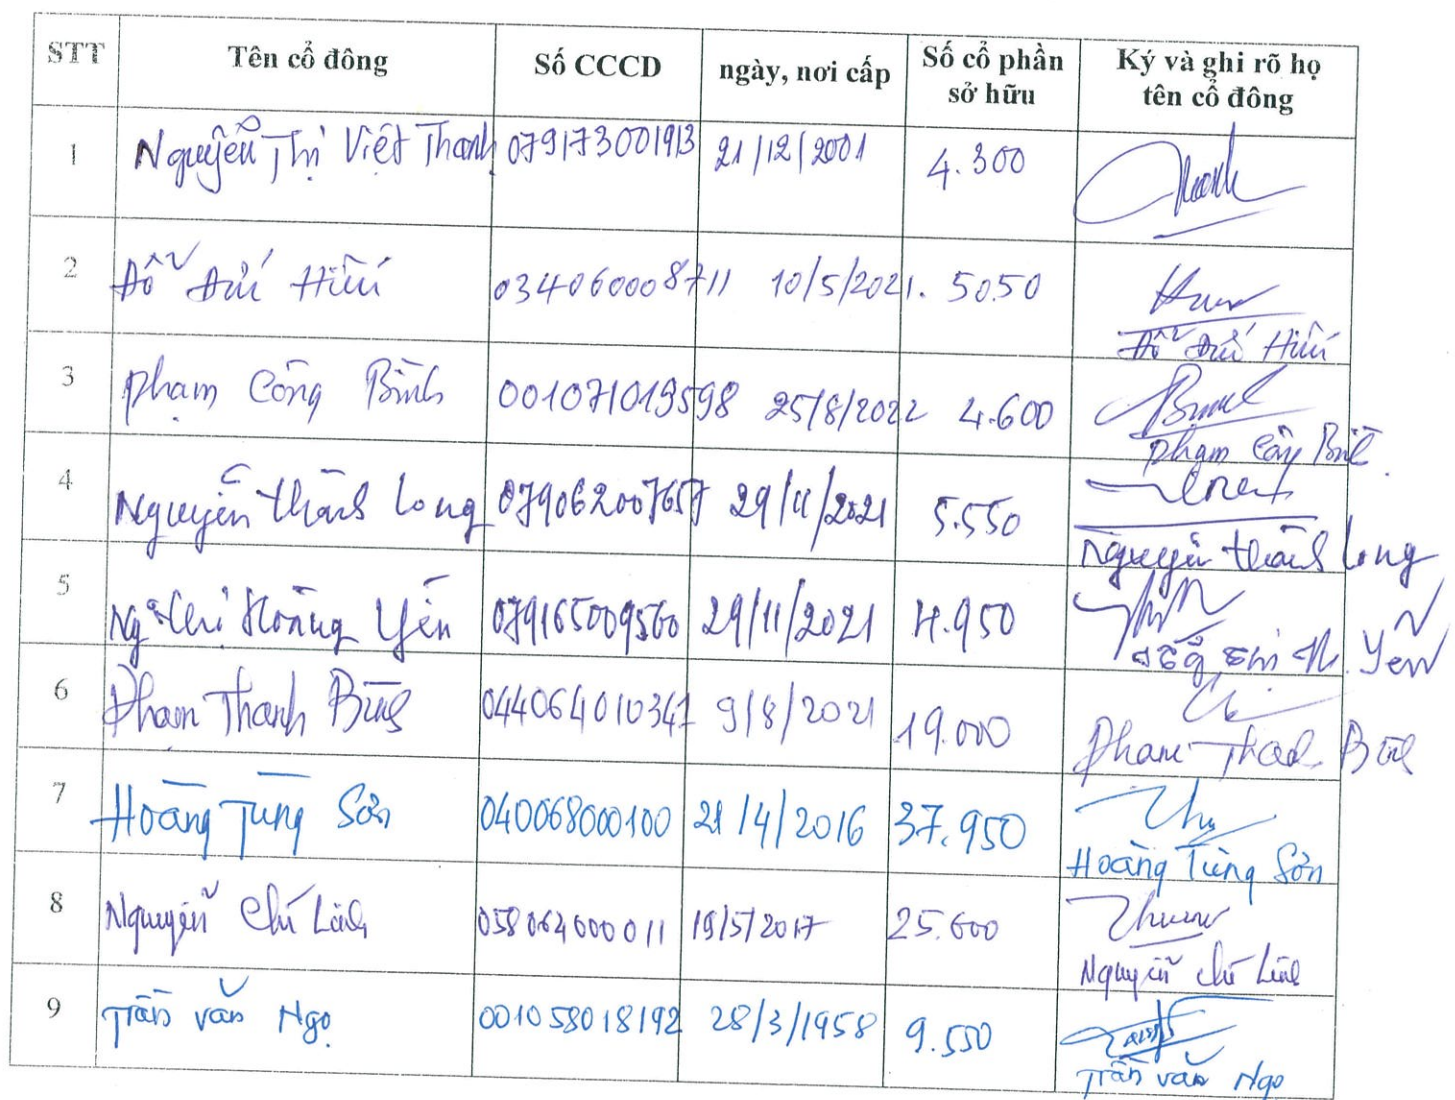 STT Tên cổ đông Số CCCD ngày, nơi cấp Số cổ phần sở hữu Ký và ghi rõ họ tên cổ đông
1 Nguyễn Thị Việt Thanh 079173001913 21/12/2001 4.300 Thanh
2 Đỗ Đức Hiếu 034060008711 10/5/2021. 5050
Đỗ Đức Hiếu
3 Phạm Công Bình 001071019598 25/8/2022 4.600
Phạm Công Bình
4 Nguyễn Thành Long 079062007657 29/11/2021 5.550
Nguyễn Thành Long
5 Ng Thị Hoàng Yến 079165009560 29/11/2021 4.950
Yến
6 Phạm Thanh Bằng 044064010341 9/8/2021 19.000
Phạm Thanh Bằng
7 Hoàng Tùng Sơn 040068000100 21/4/2016 37.950
Hoàng Tùng Sơn
8 Nguyễn Chí Linh 058064000011 19/5/2017 25.600
Nguyễn Chí Linh
9 Trần Văn Ngọ 001058018192 28/3/1958 9.550
Trần Văn Ngọ